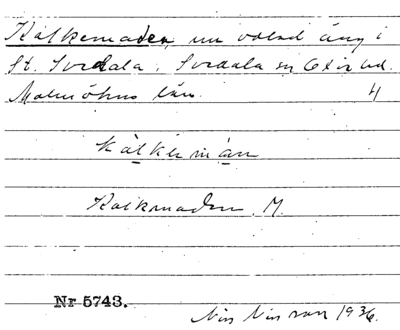 Kalkemaden, nu odlad äng i
St. Svedala, Svedala sn Oxie hd.
Malmöhus län. 4
kalkemán
Kalkmaden M.
Nr 5743.
Nils Nilsson 1936.